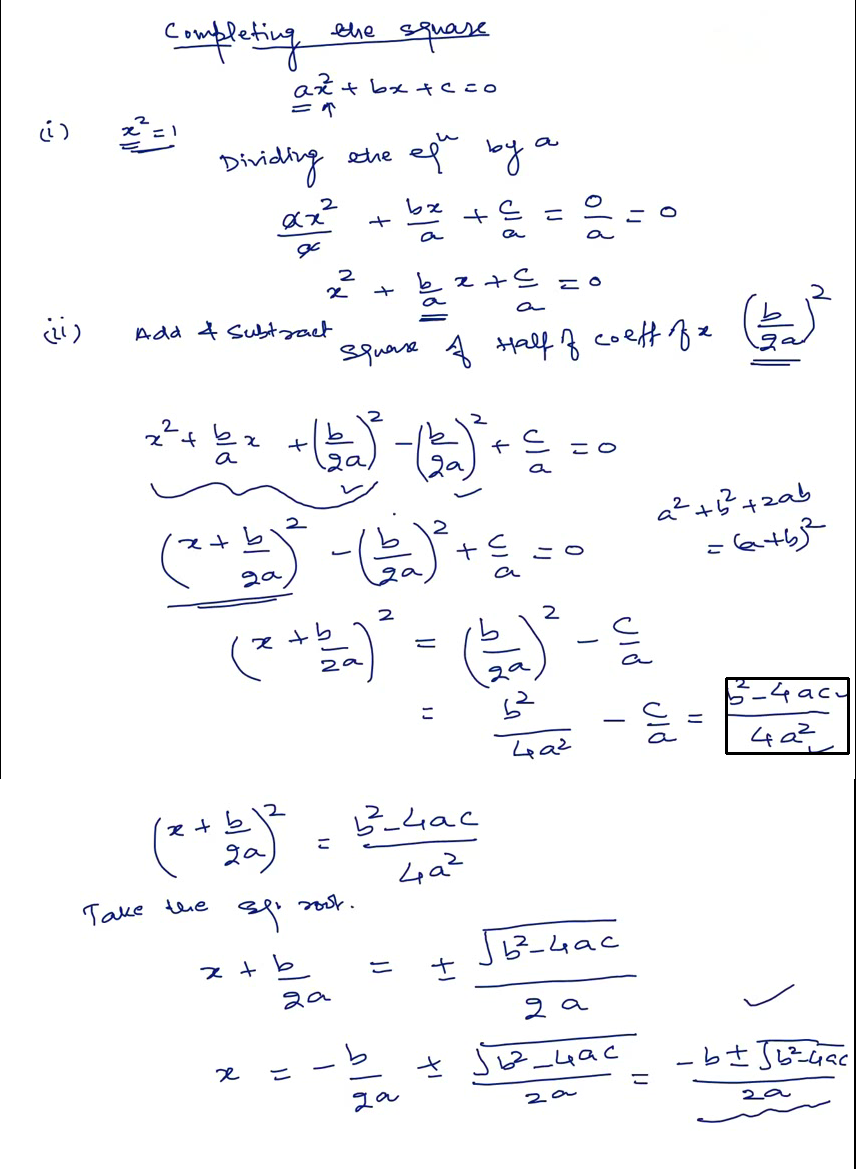 Completing the square
ax² + bx + c = 0
(i) x² = 1
Dividing the eqⁿ by a
ax²/a + bx/a + c/a = 0/a = 0
x² + b/a x + c/a = 0
(ii) Add & Subtract square of Half of coeff of x (b/2a)²
x² + b/a x + (b/2a)² - (b/2a)² + c/a = 0
a² + b² + 2ab
(x + b/2a)² - (b/2a)² + c/a = 0
= (a+b)²
(x + b/2a)² = (b/2a)² - c/a
= b²/4a² - c/a = b²-4ac/4a²
(x + b/2a)² = b²-4ac/4a²
Take the sq. root.
x + b/2a = ± √b²-4ac/2a
x = -b/2a ± √b²-4ac/2a = -b ± √b²-4ac/2a